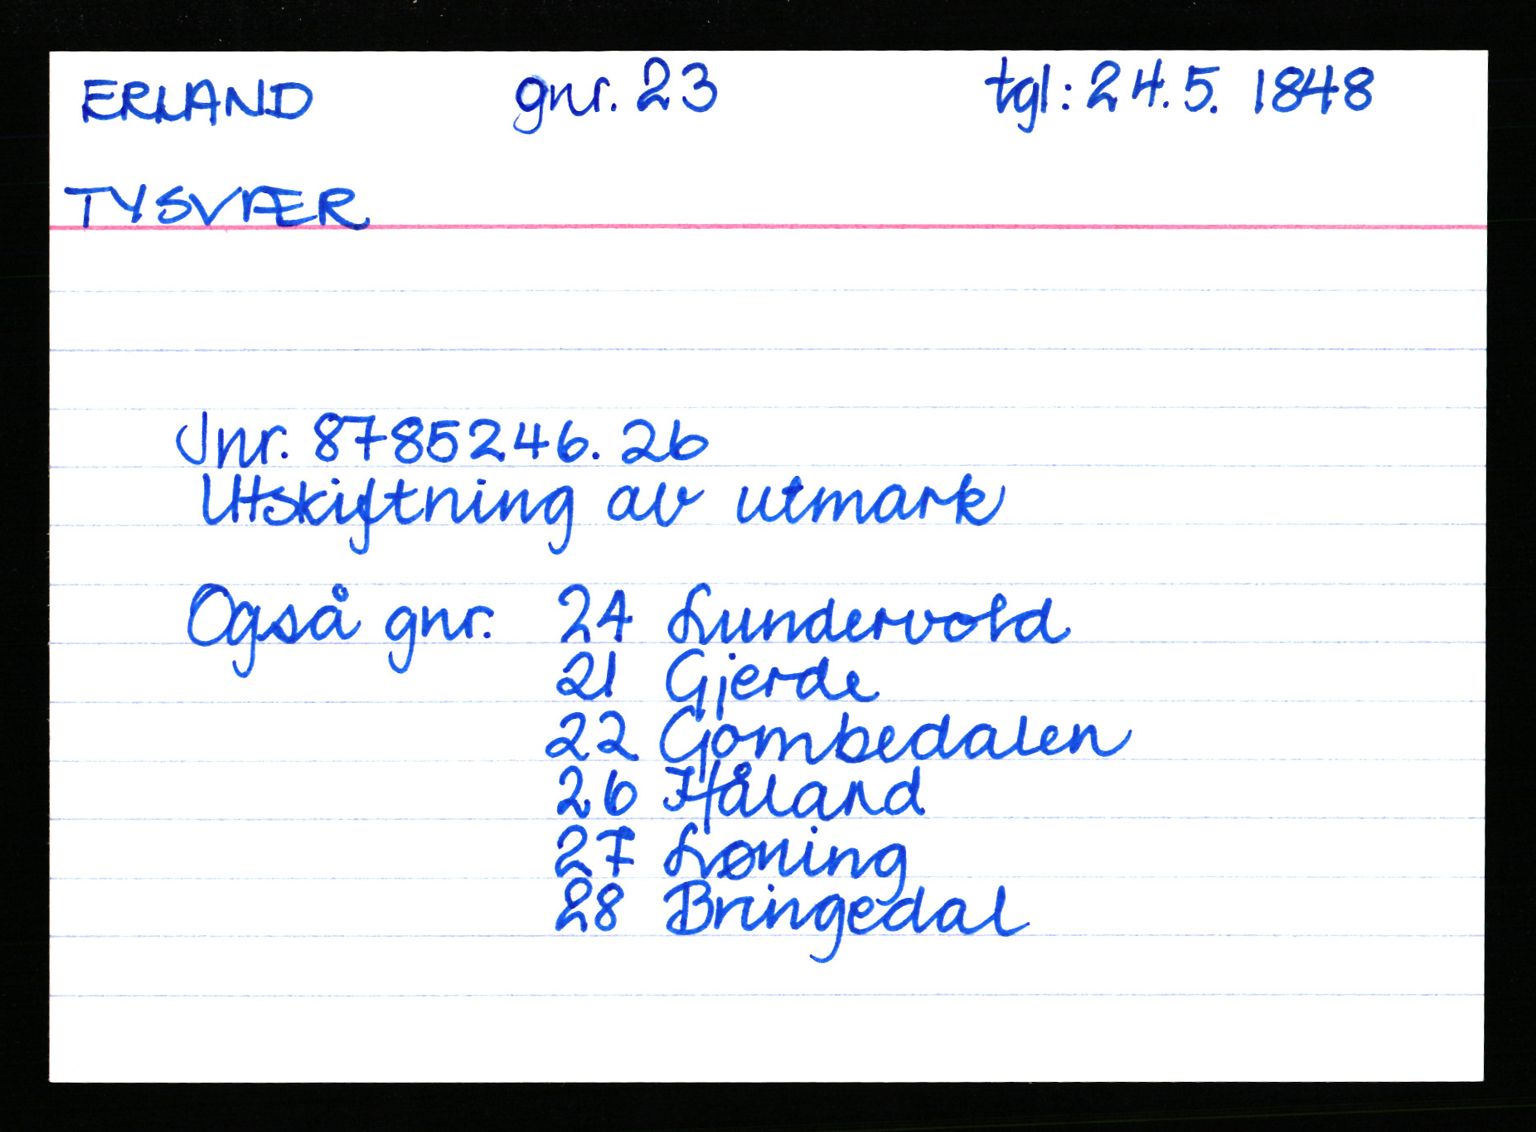 ERLAND gnr. 23 tgl: 24.5. 1848
TYSVÆR
Jnr. 8785246. 26
Utskiftning av utmark
Også gnr. 24 Lundervold
21 Gjerde
22 Gombedalen
26 Håland
27 Løning
28 Bringedal